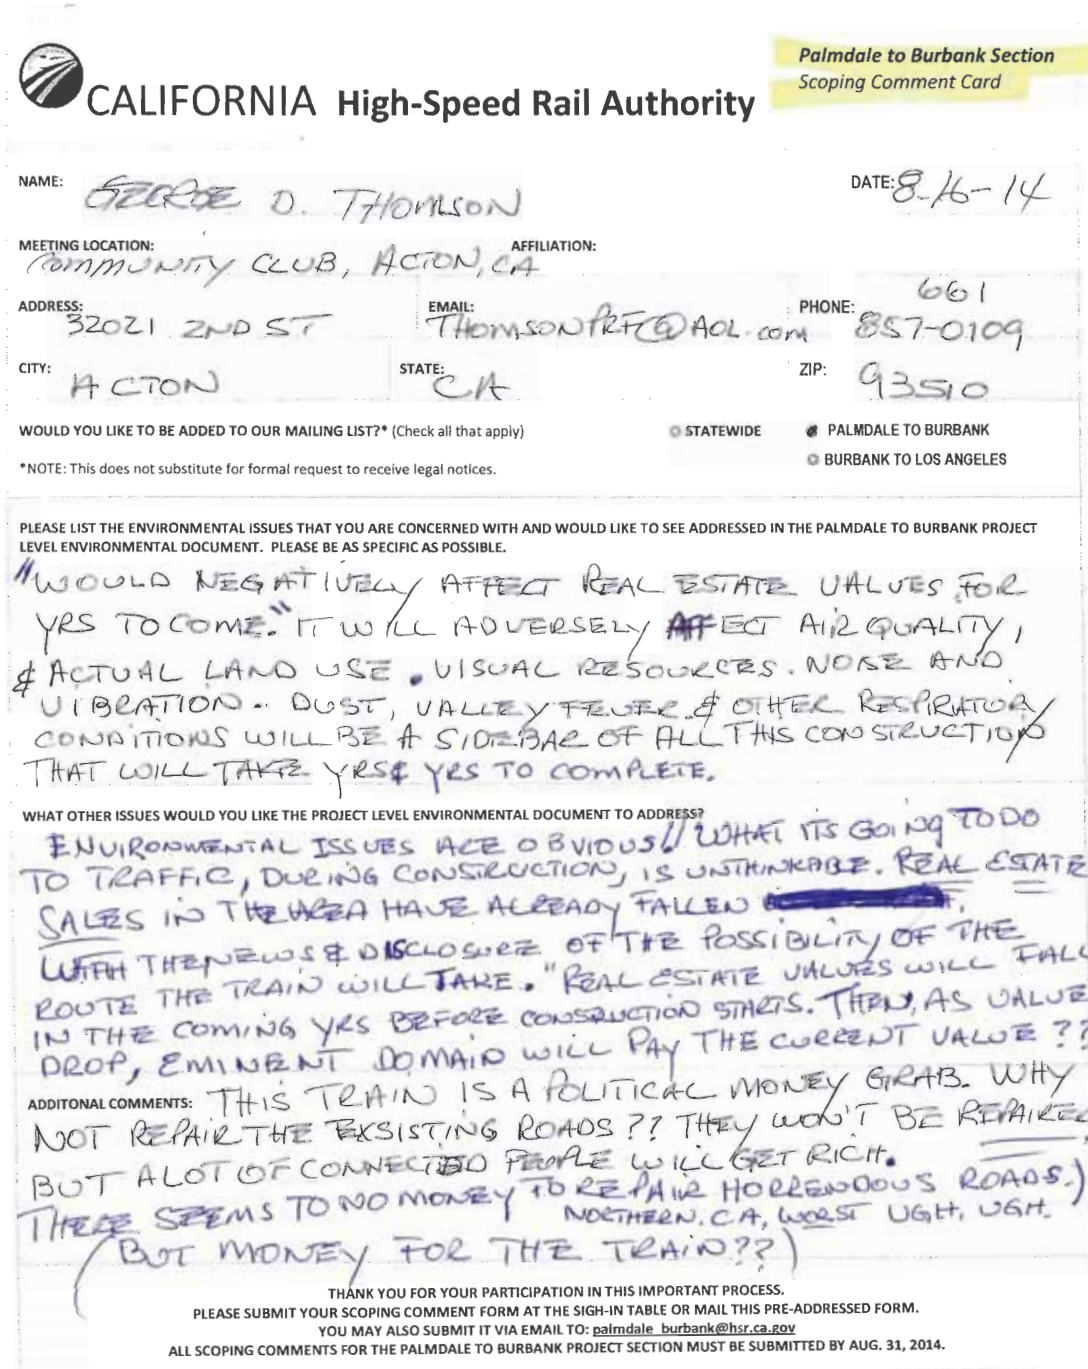 Palmdale to Burbank Section
Scoping Comment Card
CALIFORNIA High-Speed Rail Authority
NAME: GEORGE D. THOMSON DATE: 8-16-14
MEETING LOCATION: AFFILIATION:
COMMUNITY CLUB, ACTON, CA
661
ADDRESS: 32021 2ND ST EMAIL: THOMSONPRFC@AOL.com PHONE: 857-0109
CITY: ACTON STATE: CA ZIP: 93510
WOULD YOU LIKE TO BE ADDED TO OUR MAILING LIST?* (Check all that apply) STATEWIDE PALMDALE TO BURBANK
*NOTE: This does not substitute for formal request to receive legal notices. BURBANK TO LOS ANGELES
PLEASE LIST THE ENVIRONMENTAL ISSUES THAT YOU ARE CONCERNED WITH AND WOULD LIKE TO SEE ADDRESSED IN THE PALMDALE TO BURBANK PROJECT
LEVEL ENVIRONMENTAL DOCUMENT. PLEASE BE AS SPECIFIC AS POSSIBLE.
"WOULD NEGATIVELY AFFECT REAL ESTATE VALUES FOR
YRS TO COME." IT WILL ADVERSELY AFFECT AIR QUALITY,
& ACTUAL LAND USE. VISUAL RESOURCES. NOISE AND
VIBRATION.. DUST, VALLEY FEVER & OTHER RESPIRATORY
CONDITIONS WILL BE A SIDEBAR OF ALL THIS CONSTRUCTION
THAT WILL TAKE YRS & YRS TO COMPLETE.
WHAT OTHER ISSUES WOULD YOU LIKE THE PROJECT LEVEL ENVIRONMENTAL DOCUMENT TO ADDRESS?
ENVIRONMENTAL ISSUES ARE OBVIOUS!! WHAT ITS GOING TO DO
TO TRAFFIC, DURING CONSTRUCTION, IS UNTHINKABLE. REAL ESTATE
SALES IN THE AREA HAVE ALREADY FALLEN
WITH THE NEWS & DISCLOSURE OF THE POSSIBILITY OF THE
ROUTE THE TRAIN WILL TAKE. "REAL ESTATE VALUES WILL FALL
IN THE COMING YRS BEFORE CONSRUCTION STARTS. THEN, AS VALUE
DROP, EMINENT DOMAIN WILL PAY THE CURRENT VALUE??
ADDITONAL COMMENTS: THIS TRAIN IS A POLITICAL MONEY GRAB. WHY
NOT REPAIR THE EXSISTING ROADS?? THEY WON'T BE REPAIRED
BUT A LOT OF CONNECTED PEOPLE WILL GET RICH.
THERE SEEMS TO NO MONEY TO REPAIR HORRENDOUS ROADS.)
NORTHERN. CA, WORST UGH, UGH.
(BUT MONEY FOR THE TRAIN??)
THANK YOU FOR YOUR PARTICIPATION IN THIS IMPORTANT PROCESS.
PLEASE SUBMIT YOUR SCOPING COMMENT FORM AT THE SIGH-IN TABLE OR MAIL THIS PRE-ADDRESSED FORM.
YOU MAY ALSO SUBMIT IT VIA EMAIL TO: palmdale_burbank@hsr.ca.gov
ALL SCOPING COMMENTS FOR THE PALMDALE TO BURBANK PROJECT SECTION MUST BE SUBMITTED BY AUG. 31, 2014.